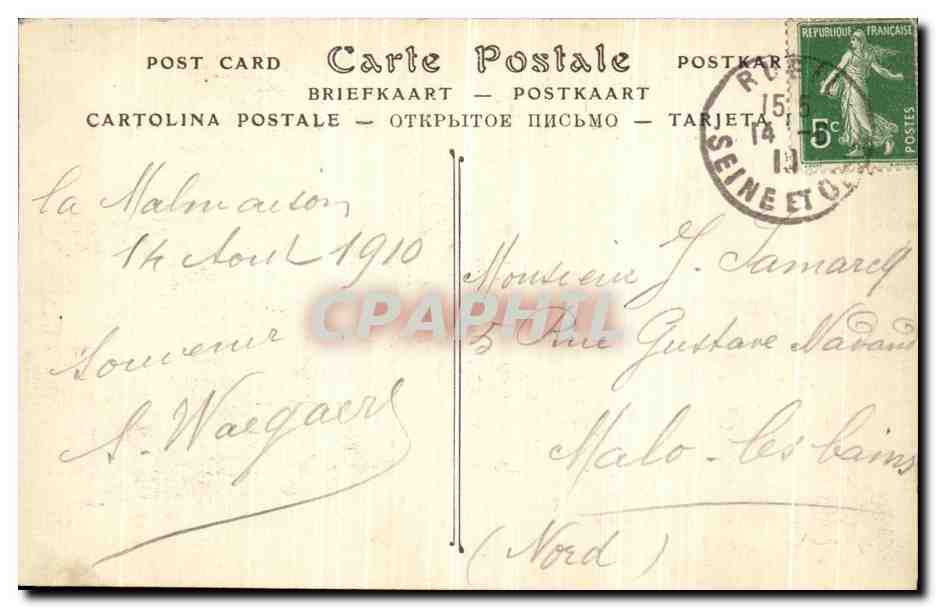 POST CARD Carte Postale POSTKAR
BRIEFKAART — POSTKAART
CARTOLINA POSTALE — ОТКРЫТОЕ ПИСЬМО — TARJETA
REPUBLIQUE FRANÇAISE
5c
POSTES
15
14
SEINE ET O
la Malmaison
14 Août 1910
Souvenir
A. Waegaert
Monsieur J. Samarcq
5 Rue Gustave
Malo-les bains
(Nord)
CPAPHIL